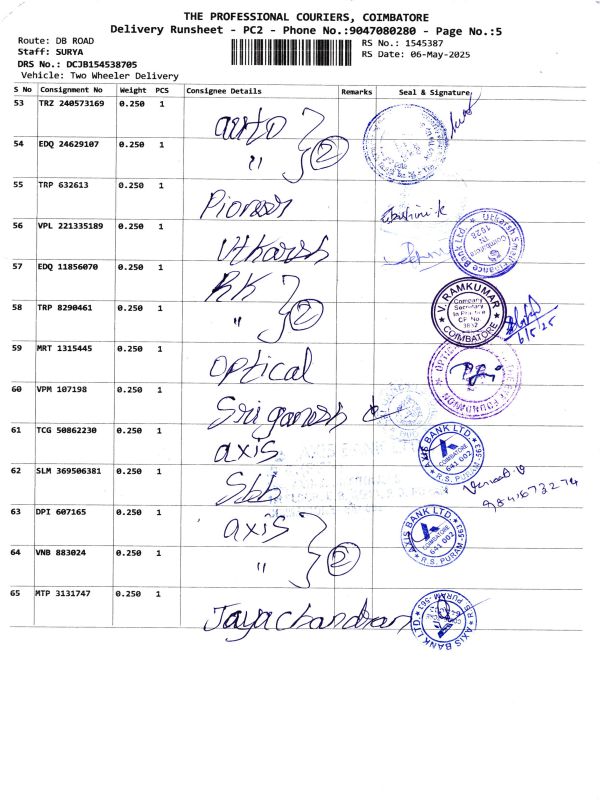 THE PROFESSIONAL COURIERS, COIMBATORE
Delivery Runsheet - PC2 - Phone No.:9047080280 - Page No.:5
Route: DB ROAD
Staff: SURYA
DRS No.: DCJB154538705
Vehicle: Two Wheeler Delivery
RS No.: 1545387
RS Date: 06-May-2025
S No Consignment No Weight PCS Consignee Details Remarks Seal & Signature
53 TRZ 240573169 0.250 1 auto
54 EDQ 24629107 0.250 1 " 2
55 TRP 632613 0.250 1 Pioneer
56 VPL 221335189 0.250 1 Utkarsh
Utkarsh Small Finance Bank Ltd.
Coimbatore
57 EDQ 11856070 0.250 1 RK
58 TRP 8290461 0.250 1 " 2
V. RAMKUMAR
Company
Secretary
In Practice
CP No.
3832
COIMBATORE
6/5/25
59 MRT 1315445 0.250 1 optical
60 VPM 107198 0.250 1 Sri ganesh
61 TCG 50862230 0.250 1 axis
AXIS BANK LTD.
COIMBATORE
641 002
R.S. PURAM
62 SLM 369506381 0.250 1 Sbb
63 DPI 607165 0.250 1 axis
64 VNB 883024 0.250 1 " 2
AXIS BANK LTD.
COIMBATORE
641 002
R.S. PURAM
65 MTP 3131747 0.250 1 Jayachandran
AXIS BANK LTD.
R.S. PURAM